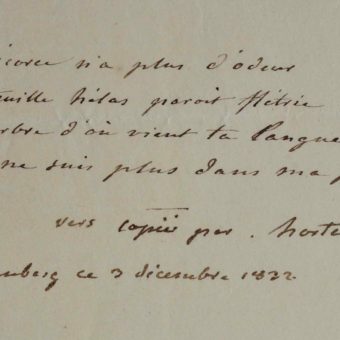 écorce n'a plus d'odeur
feuille hélas paroit flétrie
arbre d'où vient ta langue
ne suis plus dans ma
vers copié par . horte
enberg ce 3 décembre 1832